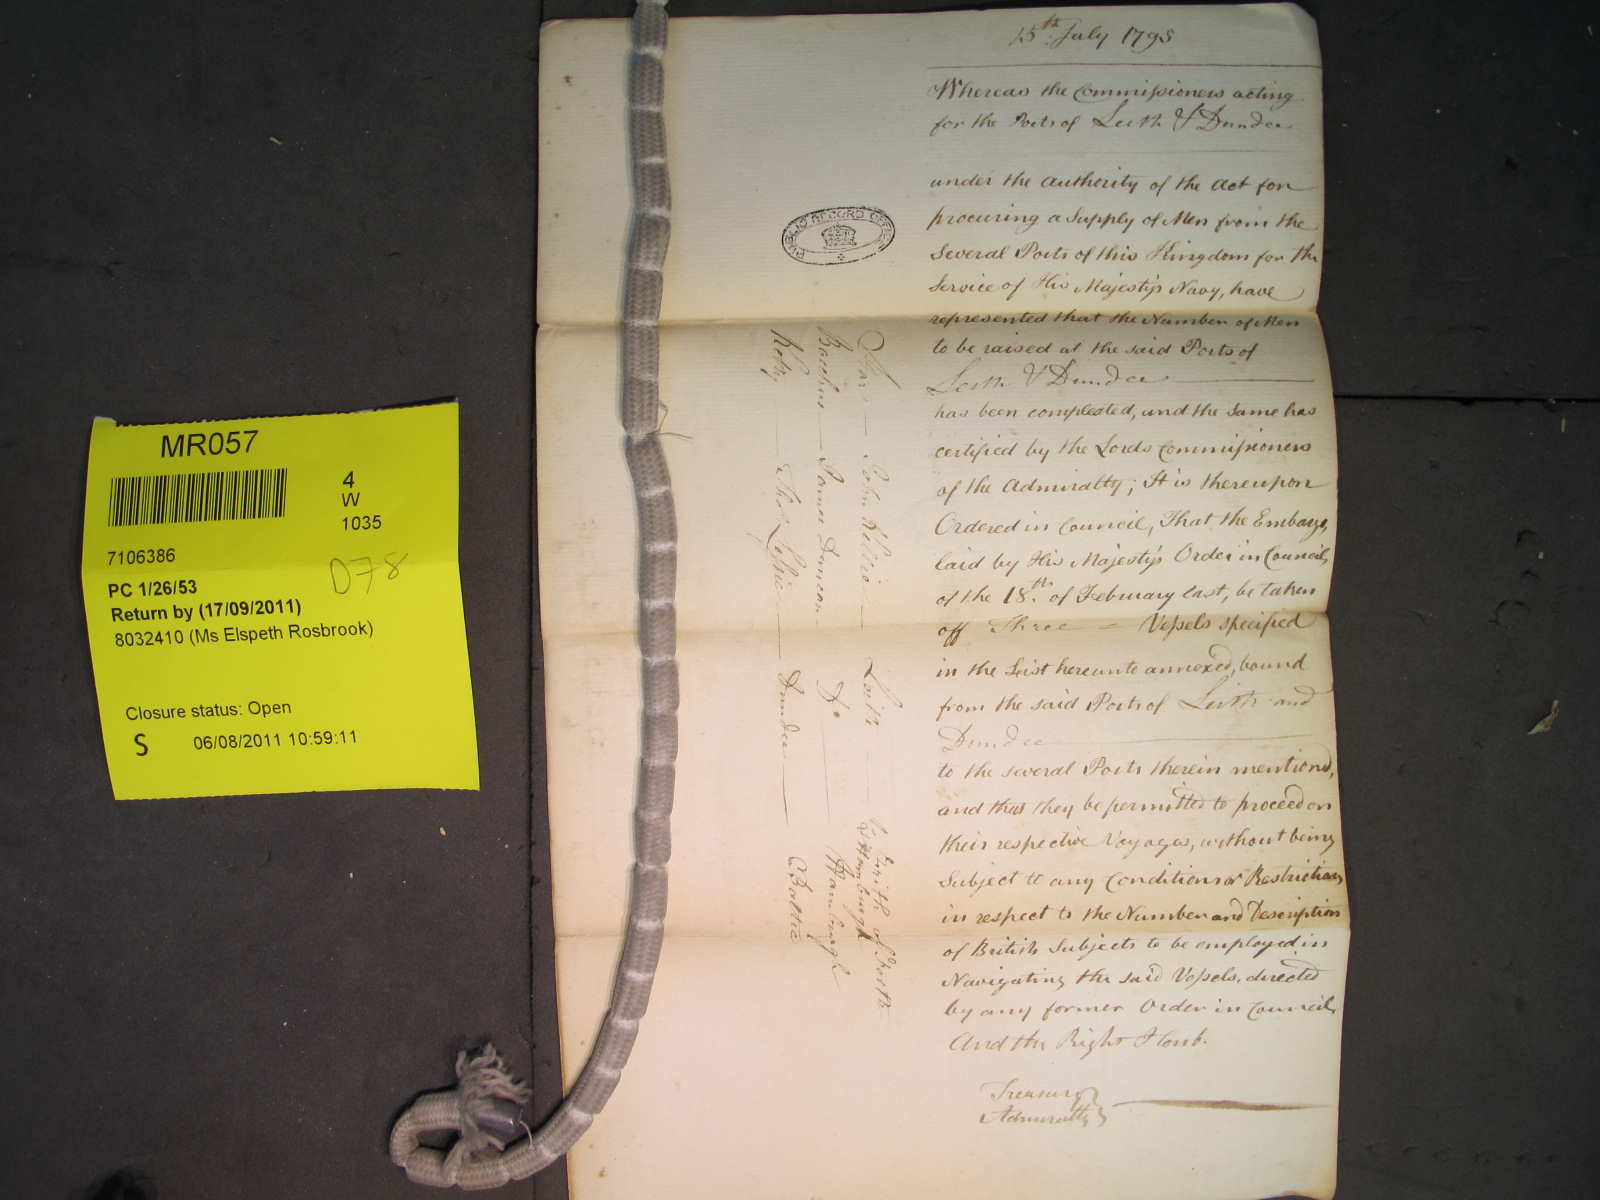 MR057
4
W
1035
7106386
D78
PC 1/26/53
Return by (17/09/2011)
8032410 (Ms Elspeth Rosbrook)
Closure status: Open
S 06/08/2011 10:59:11
PUBLIC RECORD OFFICE
15th July 1795
Whereas the Commissioners acting
for the Ports of Leith & Dundee
under the authority of the Act for
procuring a Supply of Men from the
Several Ports of this Kingdom for the
Service of His Majesty's Navy, have
represented that the Number of Men
to be raised at the said Ports of
Leith & Dundee
has been compleated, and the same has
certified by the Lords Commissioners
of the Admiralty; It is thereupon
Ordered in Council, That the Embargo,
laid by His Majesty's Order in Council,
of the 18th of February last, be taken
off Three Vessels specified
in the List hereunto annexed, bound
from the said Ports of Leith and
Dundee
to the several Ports therein mentioned,
and that they be permitted to proceed on
their respective Voyages, without being
Subject to any Conditions or Restrictions
in respect to the Number and Description
of British Subjects to be employed in
Navigating the said Vessels, directed
by any former Order in Council,
And the Right Honb.
Treasury
Admiralty
John Leith Frith of Forth
& Hamburgh
Bacchus James Duncan Do Hamburgh
Thos Leslie Dundee Baltic